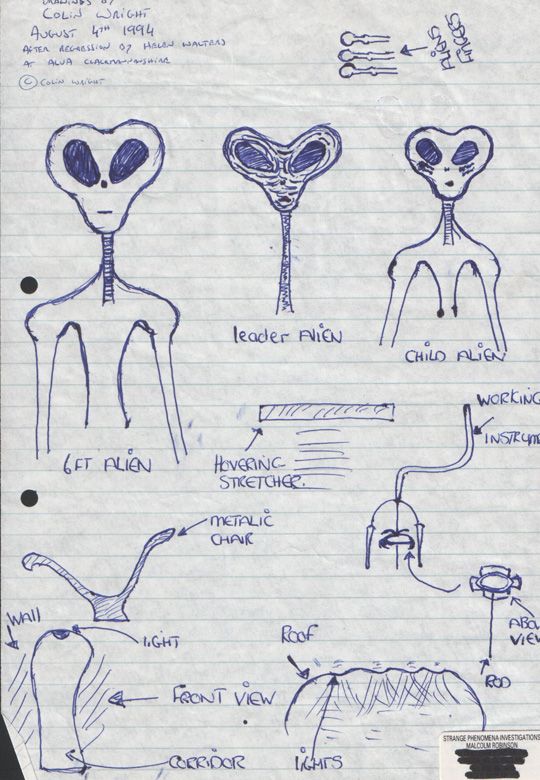 DRAWINGS BY
COLIN WRIGHT
AUGUST 4TH 1994
AFTER REGRESSION BY HELEN WALTERS
AT ALVA CLACKMANNANSHIRE
© COLIN WRIGHT
leader ALIEN
CHILD ALIEN
6FT ALIEN
HOVERING
STRETCHER.
WORKING
INSTRUM
METALIC
CHAIR
ABOV
VIEW
ROD
Wall
lIGHT
ROOF
FRONT VIEW
CORRIDOR
lIGHTS
STRANGE PHENOMENA INVESTIGATIONS
MALCOLM ROBINSON